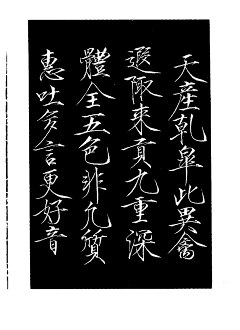 天產乾皐此異禽
遐陬來貢九重深
體全五色非凡質
惠吐多言更好音